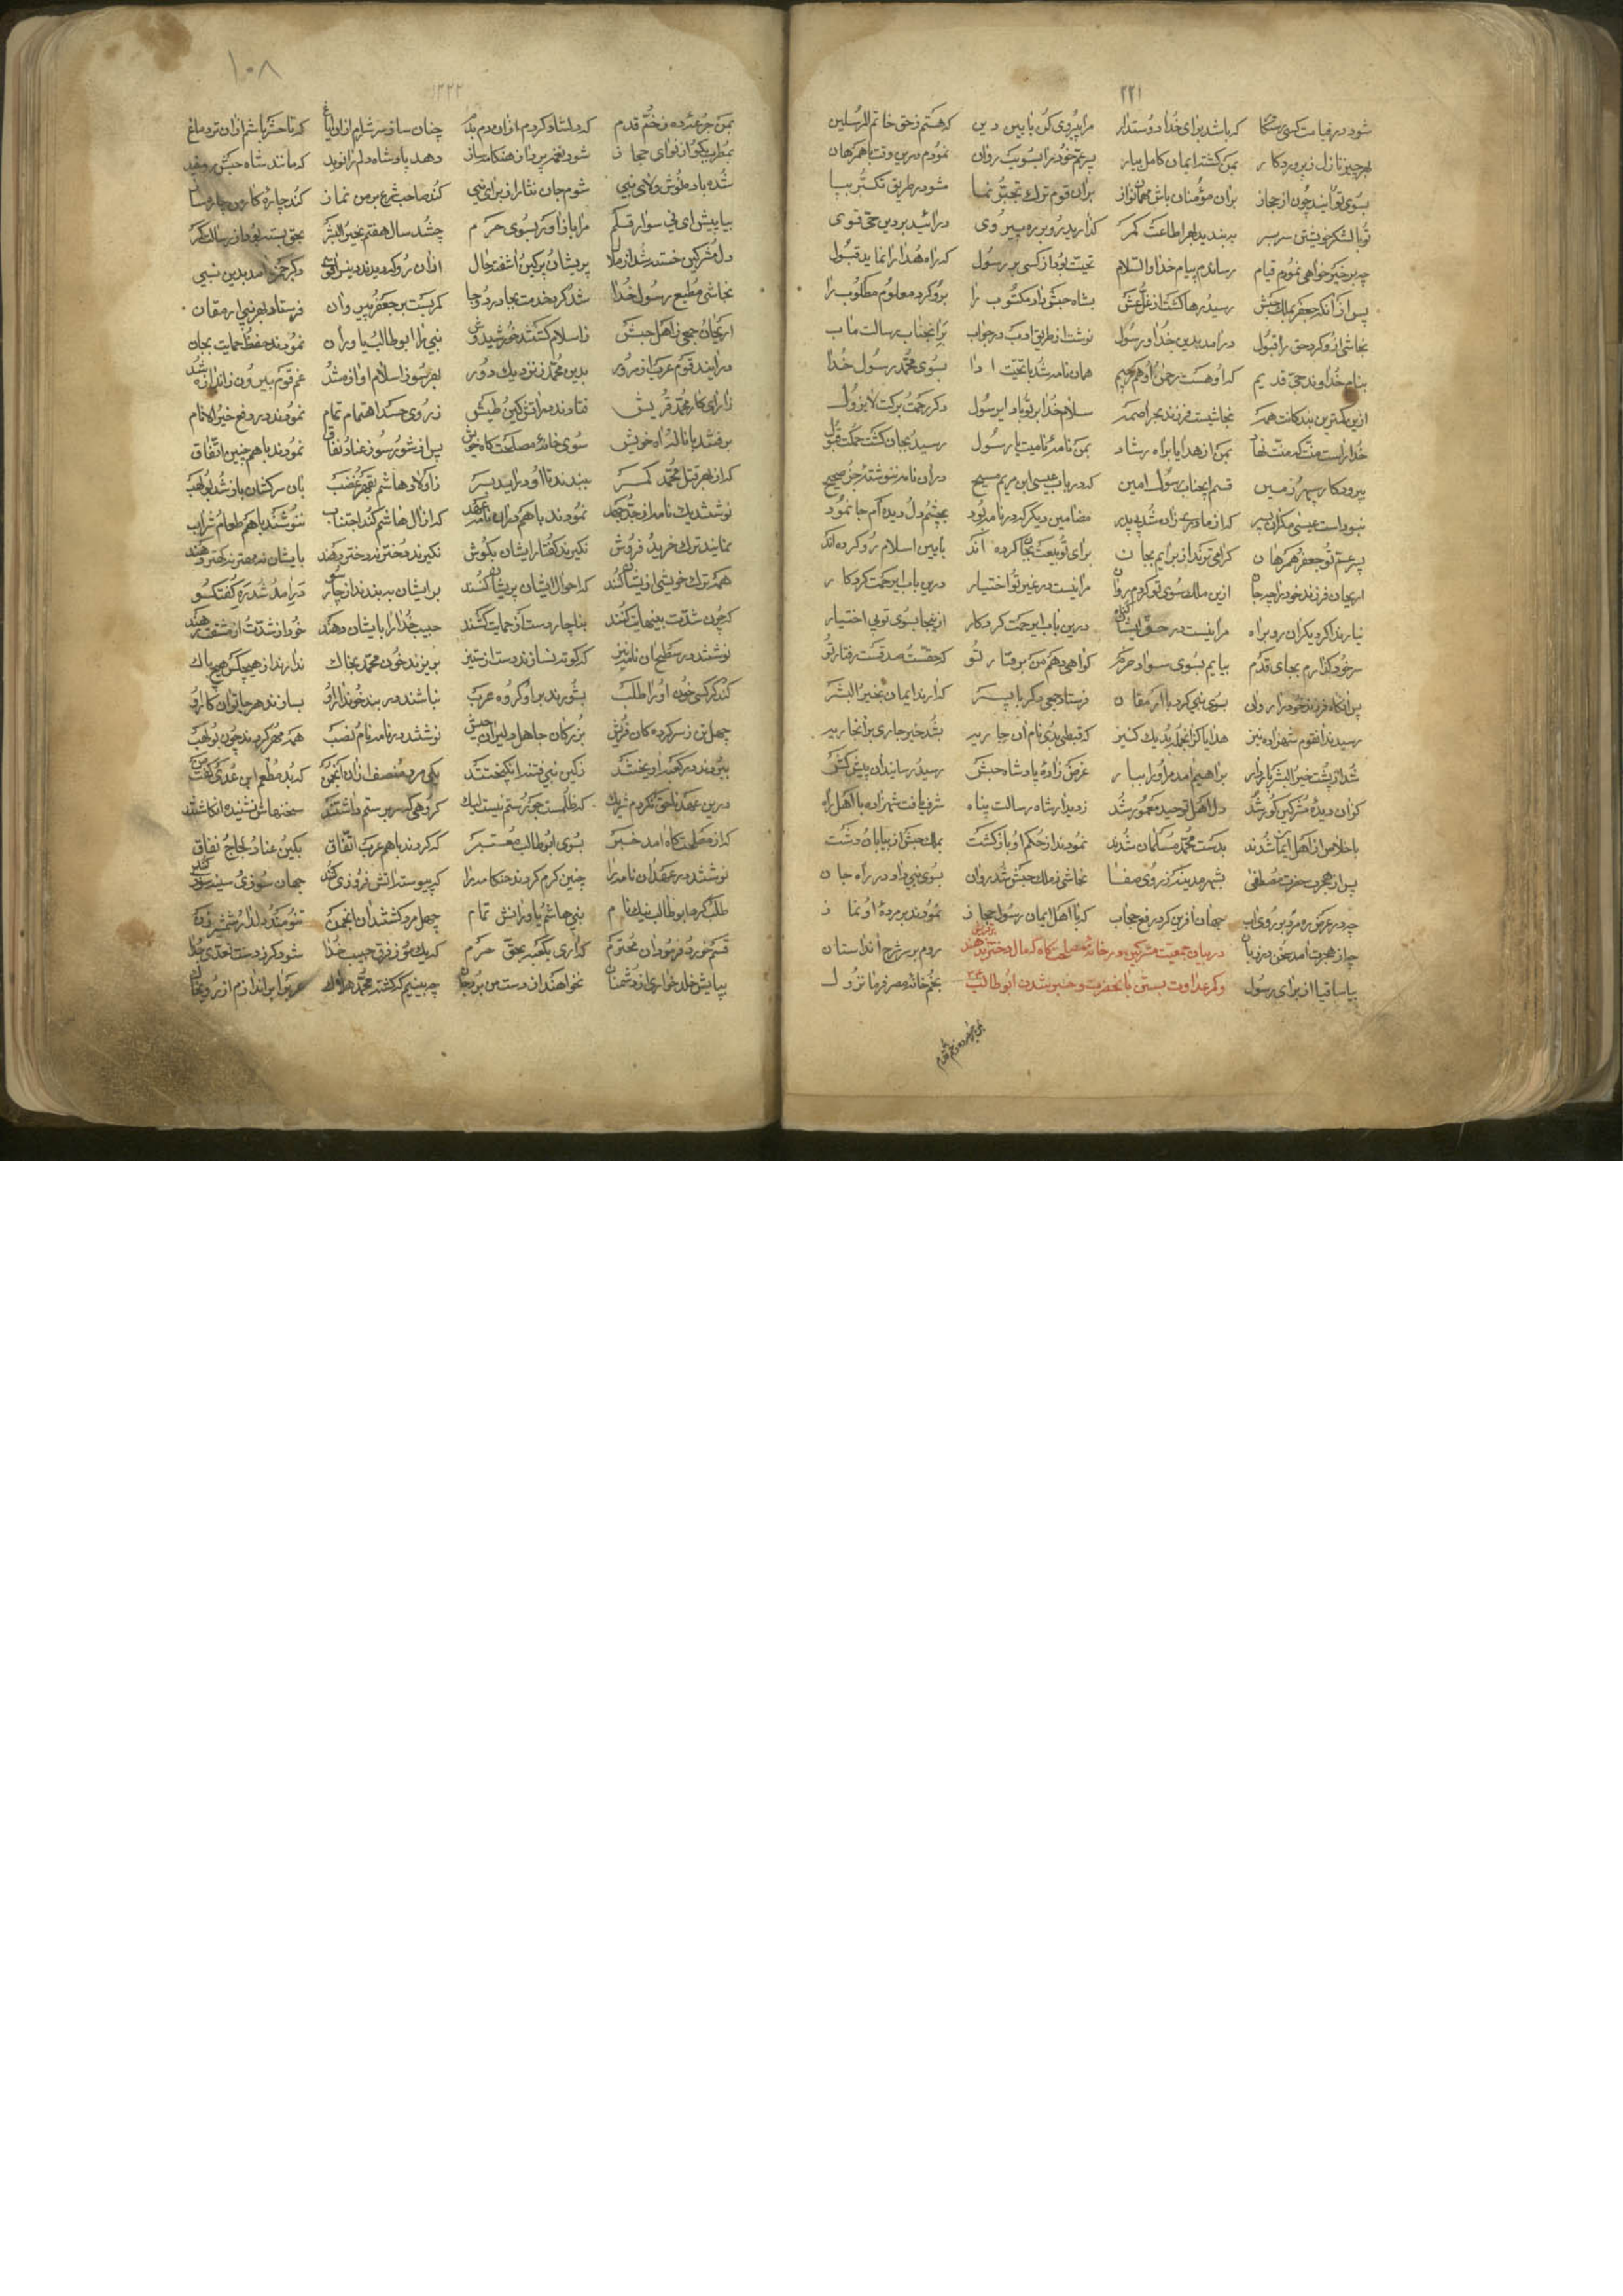 ۲۲۱
شود در قیامت کسی رستگار که باشد برای خدا دوستدار مرا پیروی کن بآیین دین که هستم زحق خاتم المرسلین
بهر چیز نازل ز پروردکار بمن کشته ایمان کامل بیار پسر عم خود را بسویت روان نمودم درین وقت با همرهان
بسوی تو آیند چون از حجاز بران مؤمنان باش مهمان نواز بران قوم ترک تجبر نما مشو در طریق تکبر بپا
تو با لشکر خویشتن سر بسر ببندید بهر اطاعت کمر کذارید رو بر ره پیروی درائید بر دین حق قوی
چه بر خیر خواهی نمودم قیام رساندم پیام خدا والسلام تحیت بود از کسی بر رسول که راه هدا را نماید قبول
پس از آنکه جعفر بملک حبش رسید و رها کشت از غل و غش بشاه حبش داد مکتوب را برو کرد معلوم مطلوب را
نجاشی ازو کرد حق را قبول درآمد بدین خدا و رسول نوشت از طریق ادب در جواب بر آنجناب رسالت مآب
بنام خداوند حی قدیم که او هست رحمن و هم رحیم همان نامه شد با تحیت ادا بسوی محمد رسول خدا
ازین کمترین بندکانت همه نجاشیست فرزند بحر اصحمه سلام خدا بر تو باد ای رسول دکر رحمت و برکت لایزول
خدا راست منت که منت نهاد بمن از هدایا براه رشاد بمن نامه نامیت یا رسول رسید و بجان کشت حکمت قبول
بپروردکار سپهر و زمین قسم ایجناب رسول امین که در باب عیسی ابن مریم مسیح دران نامه ننوشته جز صحیح
نبود است عیسی مکر آن بسر که از مادری زاده شد بی پدر مضامین دیکر که در نامه بود بچشم دل و دیده ام جا نمود
پسر عم تو جعفر و همرهان کرامی ترند از برایم بجان برای تو بیعت بجا کرده اند بآیین اسلام رو کرده اند
اریحان فرزند خود را چه جان ازین ملک سوی تو کردم روان مرا نیست در غیر تو اختیار درین باب ایرحمت کردکار
نیارند اکر دیکران رو براه مرا نیست در حق ایشان کناه درین باب ایرحمت کردکار از اینجا بسوی تویی اختیار
سر خود کذارم بجای قدم بیایم بسوی سواد حرم کواهی دهم من برفتار تو که حقست و صدقست رفتار تو
پس آنکاه فرزند خود را روان بسوی نبی کرد با ارمغان فرستاد جمعی دکر با پسر که آرند ایمان بخیر البشر
رسیدند آنقوم و شهزاده نیز هدایا کز آنجمله بد یک کنیز که قبطی بدی نام آن جاریه بشد خیر جاری بر آنجاریه
شد از پشت خیر البشر باردار براهیم آمد مر او را ببار غرض زاده پادشاه حبش رسید و رسانید آن پیش کش
کزان دیده مشرکین کور شد دل اهل توحید معمور شد ز دیدار شاه رسالت پناه شرف یافت شهزاده با اهل راه
باخلاص از اهل ایمان شدند بدست محمد مسلمان شدند نمودند از حکم او بازکشت بملک حبش از بیابان و دشت
پس از هجرت حضرت مصطفی بشهر مدینه ز روی صفا نجاشی ز ملک حبش شد روان بسوی نبی داد در راه جان
چه در عرض ره مرد بر روی آب جهان آفرین کرد رفع حجاب که با اهل ایمان رسول حجاز نمودند بر مرده او نماز
چه از هجرت آمد سخن در زبان در بیان جمعیت مشرکین در خانه مصلحت کاه که مال و دختر ندهند روم بر سر شرح آن داستان
بیا ساقیا از برای رسول و کر عداوت بستن با آنحضرت و خبر شدن ابوطالب ع م بخم خانه مصر فرما نزول
بمن جرعه ده ز خم قدم
۱۰۸
۲۲۲
بمن جرعه ده ز خم قدم که دلشاد کردم ازان دم بدم چنان ساز سرشارم از آن ایاغ که تا حشر باشم ازان تر دماغ
بمطرب بکو از نوای حجاز شود نغمه پرداز و هنکامه ساز دهد پادشاه دلم را نوید که مانند شاه حبش رو سفید
شده باده نوش ولای نبی شوم جان نثار از برای نبی کند صاحب شرع بر من نماز کند چاره کار من چاره ساز
بیا پیش ای نی سوار قلم مرا باز آور بسوی حرم چه شد سال هفتم بخیر البشر بحق بسته بود از رسالت کمر
دل مشرکین خسته شد از ملال پریشان و پرکین و اشفته حال ازان رو که دیدند دین را قوی دکر حمزه آمد بدین نبی
نجاشی مطیع رسول خدا شد و کرد خدمت بجا در وجا کمر بست بر جعفر و پیروان فرستاد بهر نبی ارمغان
اریحان و جمعی ز اهل حبش ز اسلام کشتند خورشید وش نبی را ابوطالب و یاوران نمودند حفظ و حمایت بجان
درآیند قوم عرب از مرور بدین محمد ز نزدیک و دور بهر سو ز اسلام آوازه شد غم قوم بیرون ز اندازه شد
ز آرای کار محمد قریش فتادند در آتش کین و طیش ز روی حسد اهتمام تمام نمودند در دفع خیر الانام
برفتند با ناله و آه خویش سوی خانه مصلحت کاه خویش پس از شور و سوز و عناد و نفاق نمودند با هم چنین اتفاق
که از بهر قتل محمد کمر ببندند تا او در آید بسر ز اولاد هاشم بقهر و غضب بآن سرکشان یار شد بولهب
نوشتند یک نامه از جد و جهد نمودند با هم در آن نامه عهد که از آل هاشم کنند اجتناب ننوشند با هم طعام و شراب
نمایند ترک خرید و فروش نکیرند کفتار ایشان بکوش نکیرند دختر نه دختر دهند بایشان نه مهتر نه کهتر دهند
همه ترک خویشی از ایشان کنند که احوال ایشان پریشان کنند بر ایشان ببندند از چار سو در آمد شد و ره کفتکو
که چون شدت بینهایت کنند بناچار دست از حمایت کشند حبیب خدا را بایشان دهند خود از شدت و از مشقت رهند
نوشتند در سطح آن نامه نیز که کوته نسازند دست از ستیز بریزند خون محمد بخاک ندارند از هیچکس هیچ باک
کند کر کسی خون او را طلب بشورند بر او کروه عرب نباشند در بند خون دارو بسازند هر جا توان کار او
چهل تن ز سر کرده کان قریش بزرکان جاهل دلیران جیش نوشتند در نامه نام و نسب همه مهر کردند چون بولهب
ببردند در کعبه آویختند ز کین نبی فتنه انکیختند یکی مرد منصف ازان انجمن که بد مطعم ابن عدی کفت من
درین عهد ناحق نکردم شریک که ظلمست جور و ستم نیست لیک کروهی که سر بر ستم داشتند سخنهاش نشنیده انکاشتند
که از مصلحتکاه آمد خبر بسوی ابوطالب معتبر که کردند با هم عرب اتفاق بکین و عناد و لجاج و نفاق
نوشتند در عقد آن نامه را چنین کرم کردند هنکامه را که پیوسته آتش فروزی کنند جهان سوزی و سینه سوزی کنند
طلب کرد ابوطالب نیک نام بنی هاشم و یاورانش تمام چهل مرد کشتند آن انجمن تنومند و دلدار و شمشیر زن
قسم خورد و فرمود آن محترم کذاری بکعبه بحق حرم که یک مو ز فرق حبیب خدا شود کر ز دست تعدی جدا
بپایش خلد خاری از دشمنان نخواهند از دست من برد جان چه بینیم کر کشته محمد هلاک